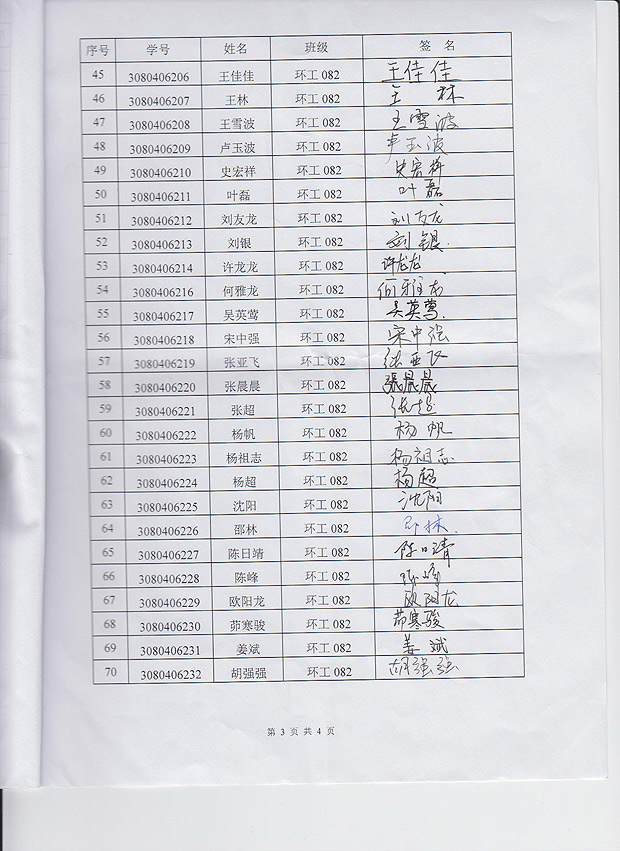 序号 学号 姓名 班级 签 名
45 3080406206 王佳佳 环工 082 王佳佳
46 3080406207 王林 环工 082 王林
47 3080406208 王雪波 环工 082 王雪波
48 3080406209 卢玉波 环工 082 卢玉波
49 3080406210 史宏祥 环工 082 史宏祥
50 3080406211 叶磊 环工 082 叶磊
51 3080406212 刘友龙 环工 082 刘友龙
52 3080406213 刘银 环工 082 刘银.
53 3080406214 许龙龙 环工 082 许龙龙
54 3080406216 何雅龙 环工 082 何雅龙
55 3080406217 吴英莺 环工 082 吴英莺.
56 3080406218 宋中强 环工 082 宋中强
57 3080406219 张亚飞 环工 082 张亚飞
58 3080406220 张晨晨 环工 082 張晨晨
59 3080406221 张超 环工 082 张超
60 3080406222 杨帆 环工 082 杨帆
61 3080406223 杨祖志 环工 082 杨祖志
62 3080406224 杨超 环工 082 杨超
63 3080406225 沈阳 环工 082 沈阳
64 3080406226 邵林 环工 082 邵林.
65 3080406227 陈日靖 环工 082 陈日靖
66 3080406228 陈峰 环工 082 陈峰
67 3080406229 欧阳龙 环工 082 欧阳龙
68 3080406230 茆寒骏 环工 082 茆寒骏
69 3080406231 姜斌 环工 082 姜斌
70 3080406232 胡强强 环工 082 胡强强
第 3 页 共 4 页